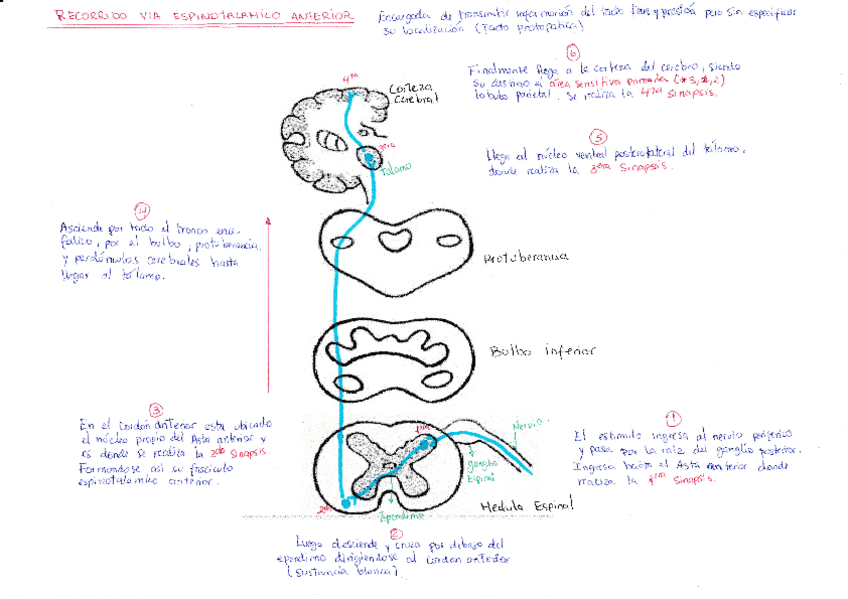 RECORRIDO VIA ESPINOTALAMICO ANTERIOR
Encargada de transmitir información del tacto leve y presión pero sin especificar
su localización (Tacto protopatica)
6
Finalmente llega a la corteza del cerebro, siendo
su destino el área sensitiva primaria (*3,1,2)
lobulo parietal, se realiza la 4ta sinapsis.
4ta
Corteza
Cerebral
3era
Tálamo
5
Llega al núcleo ventral posterolateral del tálamo,
donde realiza la 3era Sinapsis.
4
Asciende por todo el tronco ence-
falico, por el bulbo, protuberancia
y pedúnculos cerebrales hasta
llegar al tálamo.
Protuberancia
Bulbo inferior
3
En el cordón anterior esta ubicado
el núcleo propio del Asta anterior y
es donde se realiza la 2da Sinapsis.
Formandose así su fascículo
espinotalamico anterior.
1era
Nervio
ganglio
Espinal
2da
Ependimo
Medula Espinal
1
El estimulo ingresa al nervio periferico
y pasa por la raiz del ganglio posterior.
Ingresa hacia el Asta donde
realiza la 1era Sinapsis.
2
Luego desciende y cruza por debajo del
ependimo dirigiendose al cordon anterior
(sustancia blanca)